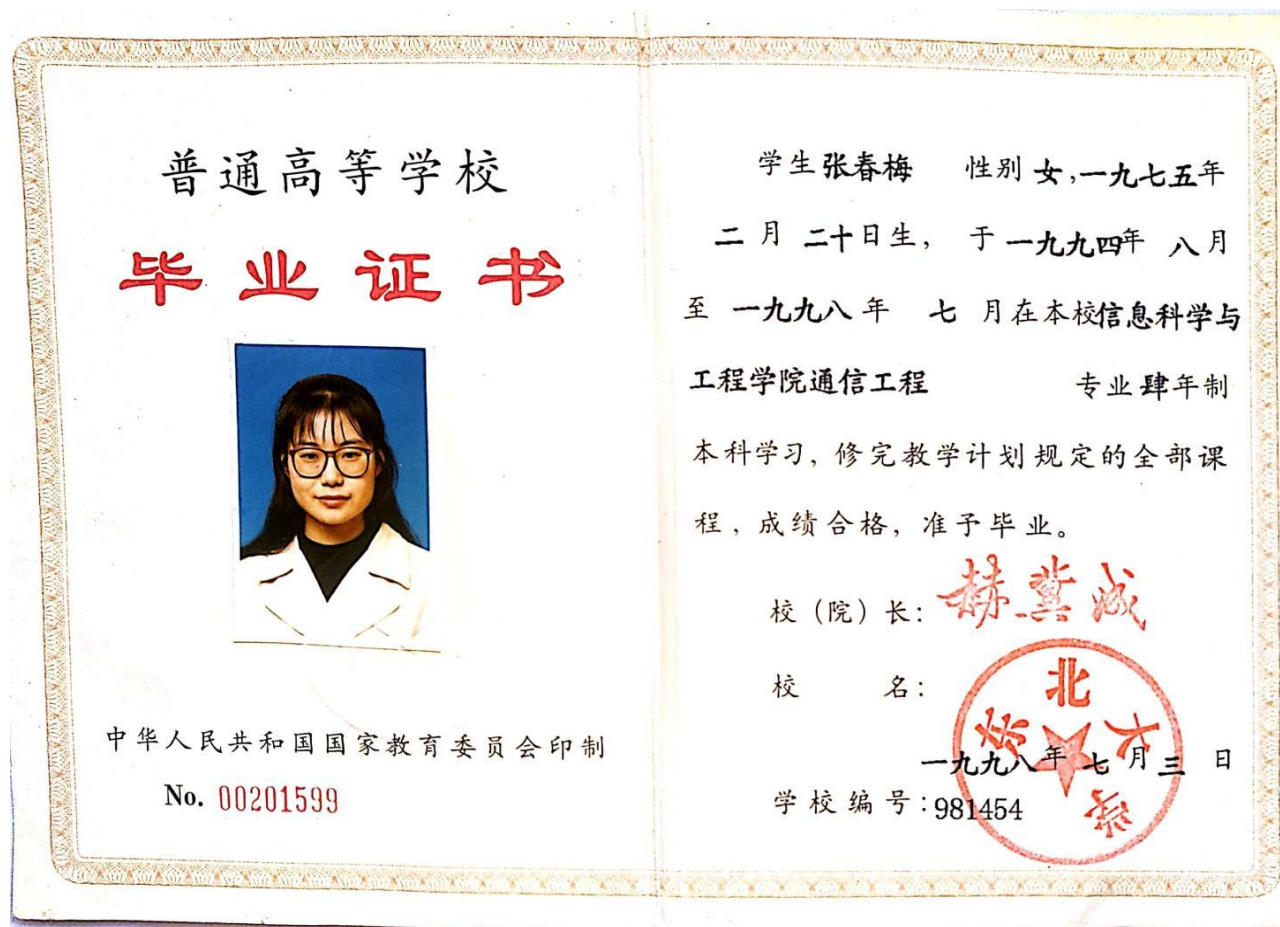 普通高等学校
毕业证书
中华人民共和国国家教育委员会印制
No. 00201599
学生张春梅 性别女,一九七五年
二月二十日生, 于一九九四年八月
至一九九八年 七月在本校信息科学与
工程学院通信工程 专业肆年制
本科学习, 修完教学计划规定的全部课
程, 成绩合格, 准予毕业。
校(院)长: 赫冀成
校 名: 东北大学
一九九八年七月三日
学校编号:981454